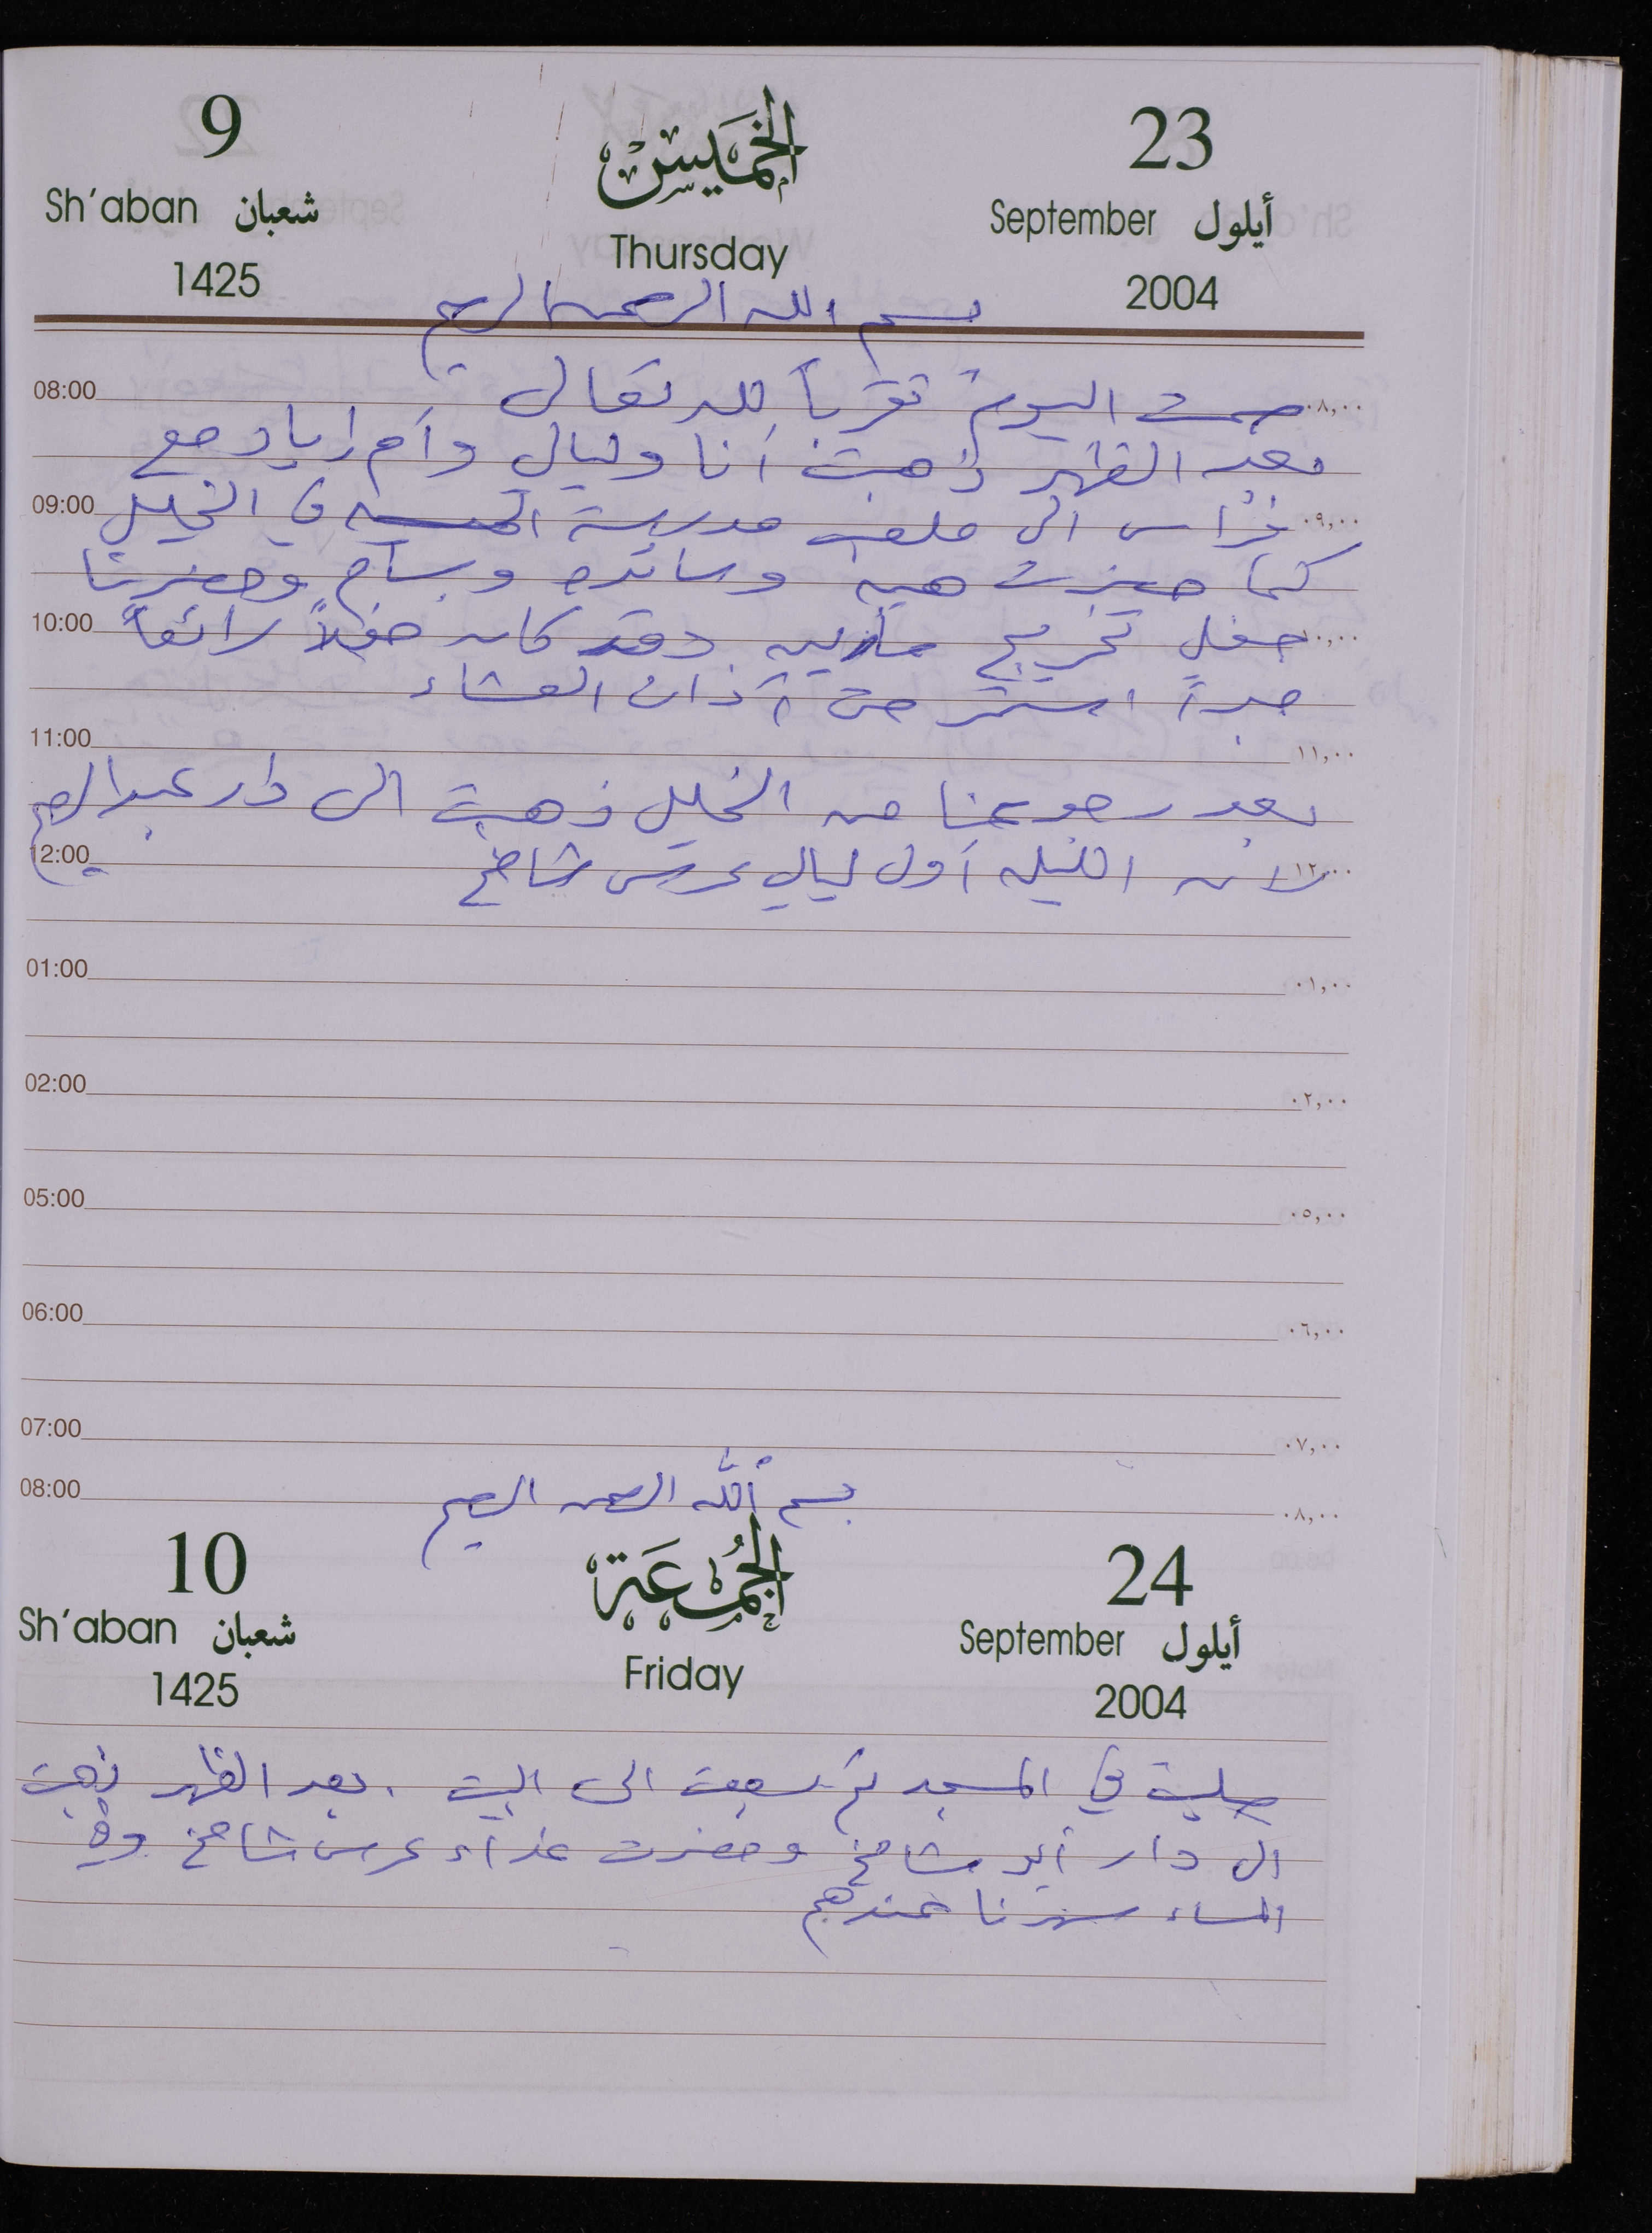 9 الخميس 23
Sh'aban شعبان Thursday September أيلول
1425 2004
بسم الله الرحمن الرحيم
08:00 صمت اليوم تقرباً لله تعالى ٠٨,٠٠
بعد الظهر ذهبت أنا وليالي وأم إياد مع
09:00 فراس الى ملعب مدرسة في الخليل ٠٩,٠٠
كما حضرت هبه وسائده وبسام وحضرنا
10:00 حفل تخريج مادلين وقد كان حفلاً رائعاً ١٠,٠٠
جداً استمر حتى آذان العشاء
11:00 ١١,٠٠
بعد رجوعنا من الخليل ذهبت الى دار عبد الرحيم
12:00 لانه الليله أول ليالي عرس شامخ ١٢,٠٠
01:00 ٠١,٠٠
02:00 ٠٢,٠٠
05:00 ٠٥,٠٠
06:00 ٠٦,٠٠
07:00 ٠٧,٠٠
بسم الله الرحمن الرحيم
08:00 ٠٨,٠٠
10 الجمعة 24
Sh'aban شعبان Friday September أيلول
1425 2004
صليت في المسجد ثم رجعت الى البيت . بعد الظهر ذهبت
الى دار أبو شامخ وحضرت غذاء عرس شامخ وفي
المساء سهرنا عندهم